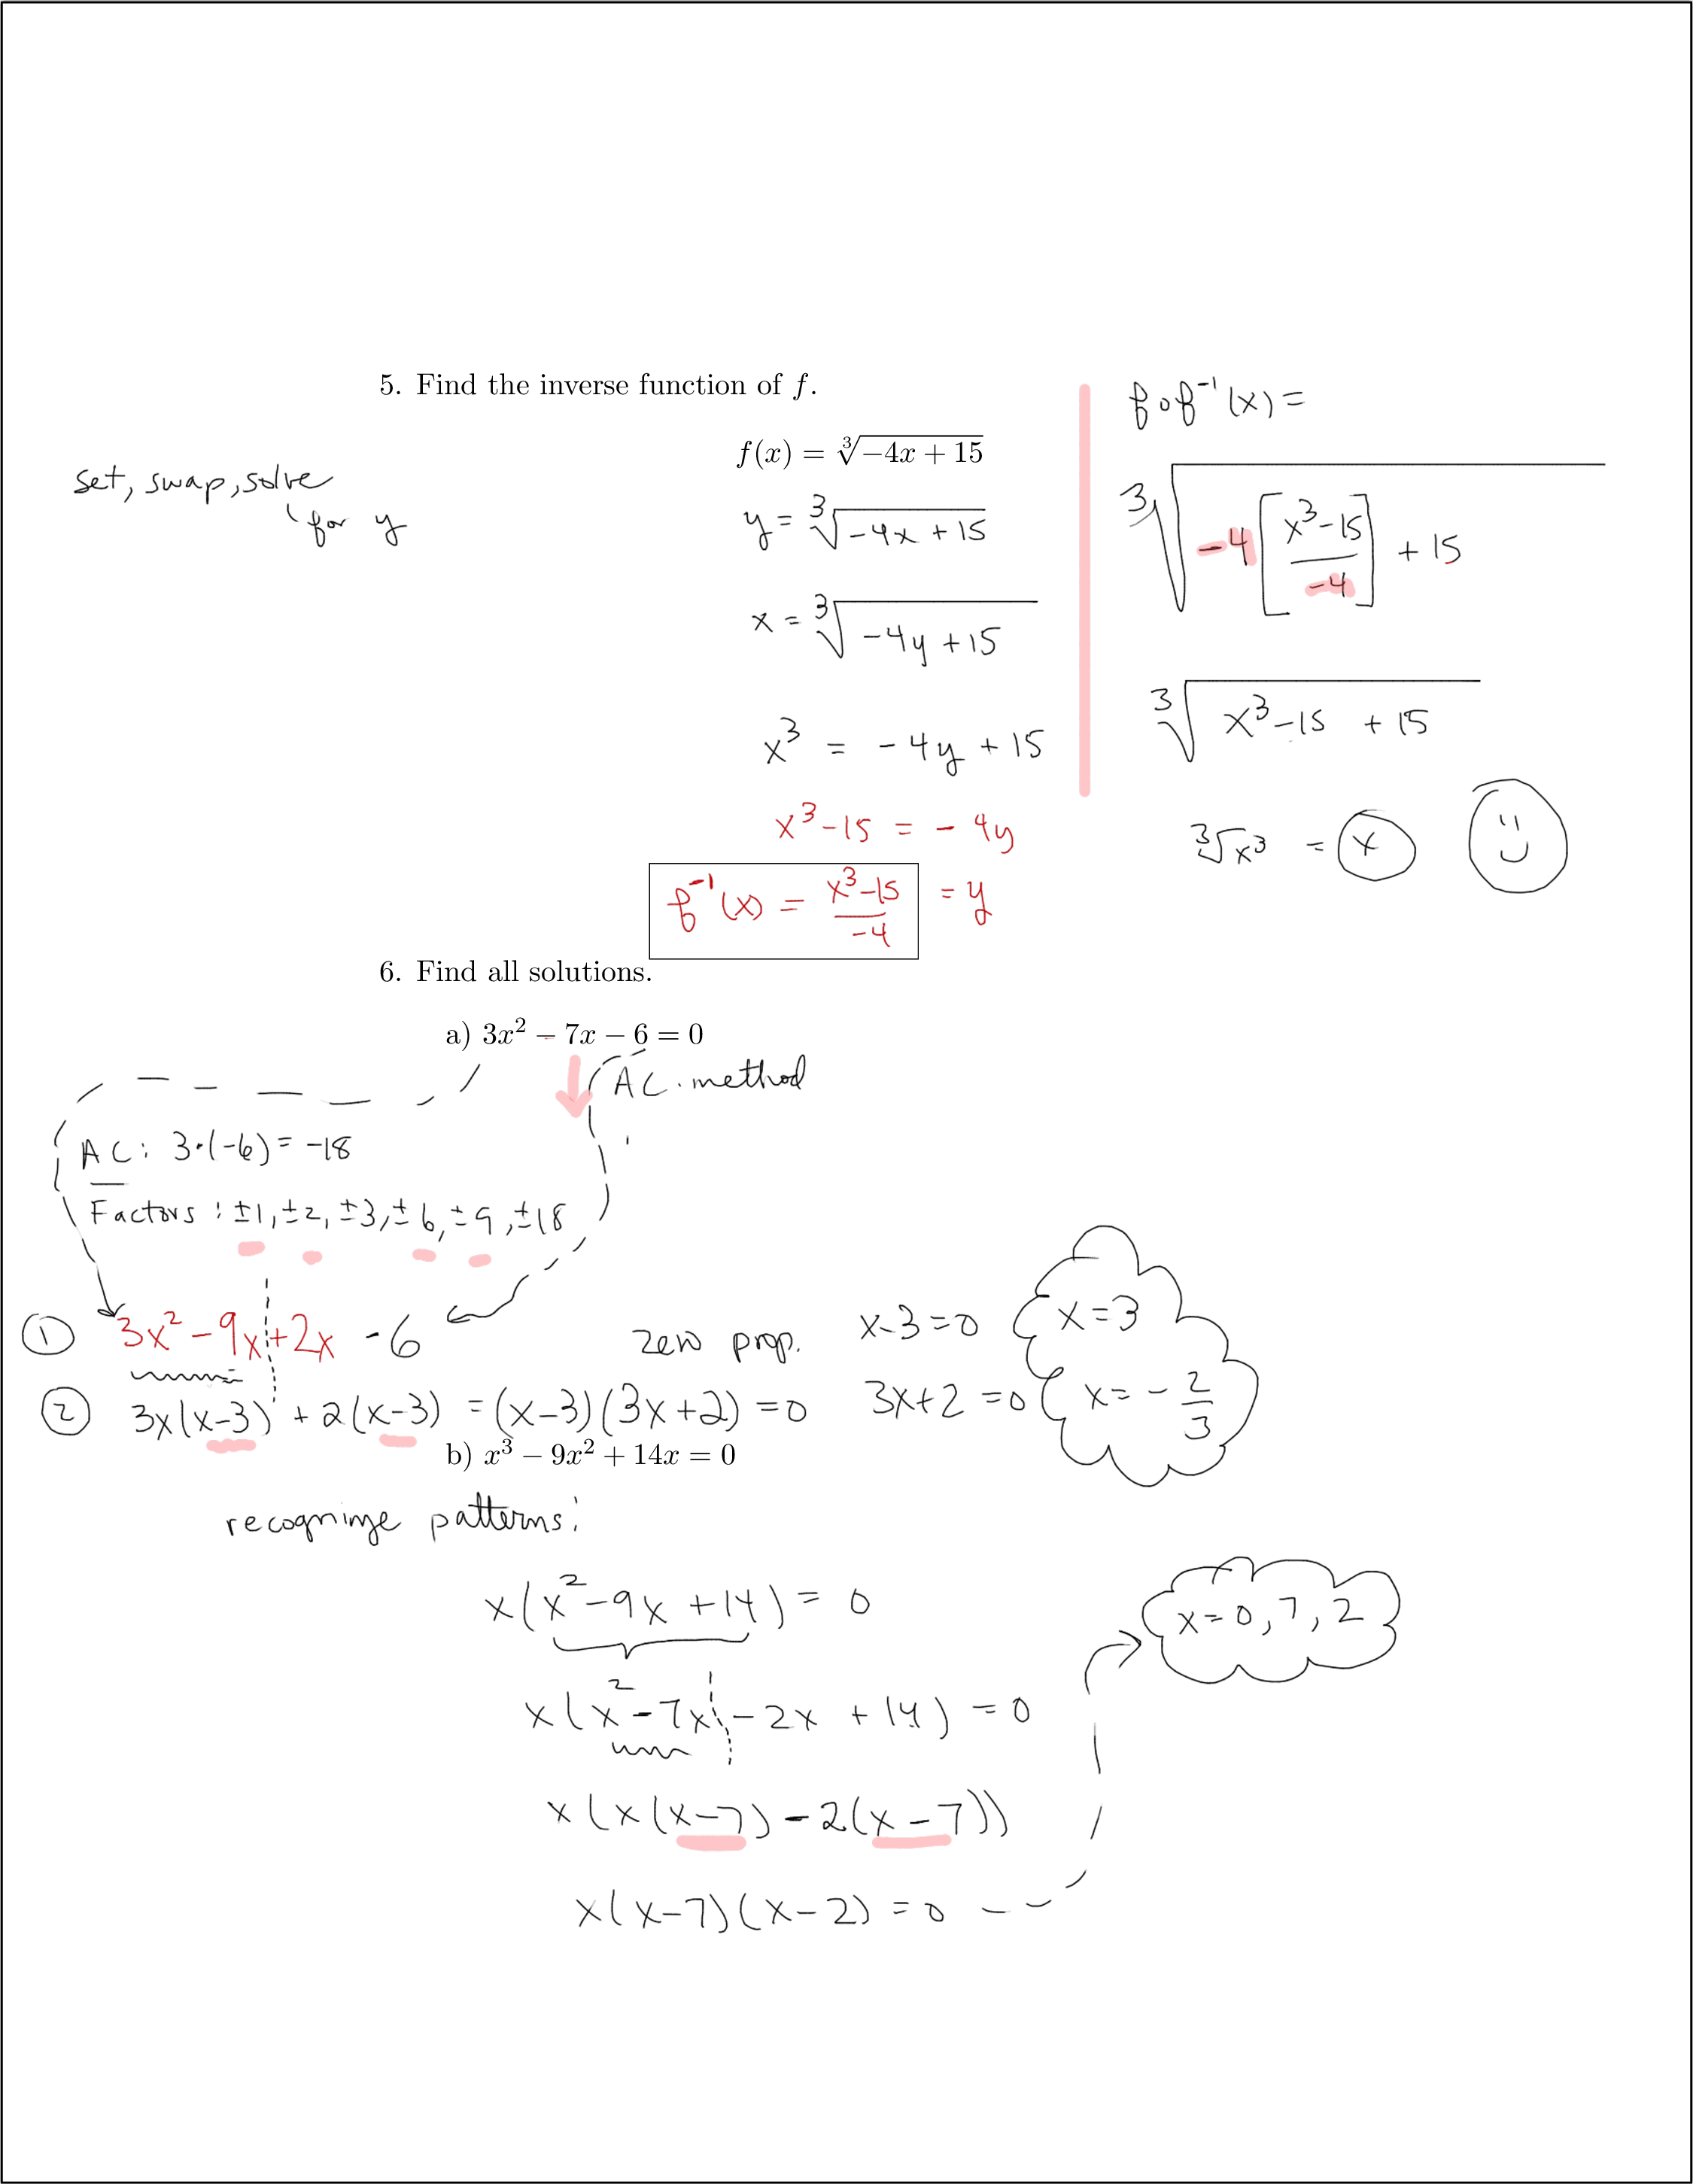 5. Find the inverse function of f.
f(x) = ∛(−4x + 15)
set, swap, solve
for y
y = ∛(−4x + 15)
x = ∛(−4y + 15)
x³ = −4y + 15
x³ −15 = −4y
f⁻¹(x) = (x³−15)/(−4) = y
f∘f⁻¹(x) =
∛(−4[(x³−15)/(−4)] + 15)
∛(x³−15 + 15)
∛x³ = x
6. Find all solutions.
a) 3x² − 7x − 6 = 0
AC-method
AC: 3·(−6) = −18
Factors: ±1, ±2, ±3, ±6, ±9, ±18
① 3x² − 9x + 2x - 6
② 3x(x−3) + 2(x−3) = (x−3)(3x+2) = 0
zero prop.
x−3 = 0
x = 3
3x+2 = 0
x = −2/3
b) x³ − 9x² + 14x = 0
recognize patterns:
x(x²−9x +14) = 0
x(x²−7x −2x +14) = 0
x(x(x−7) −2(x−7))
x(x−7)(x−2) = 0
x = 0, 7, 2